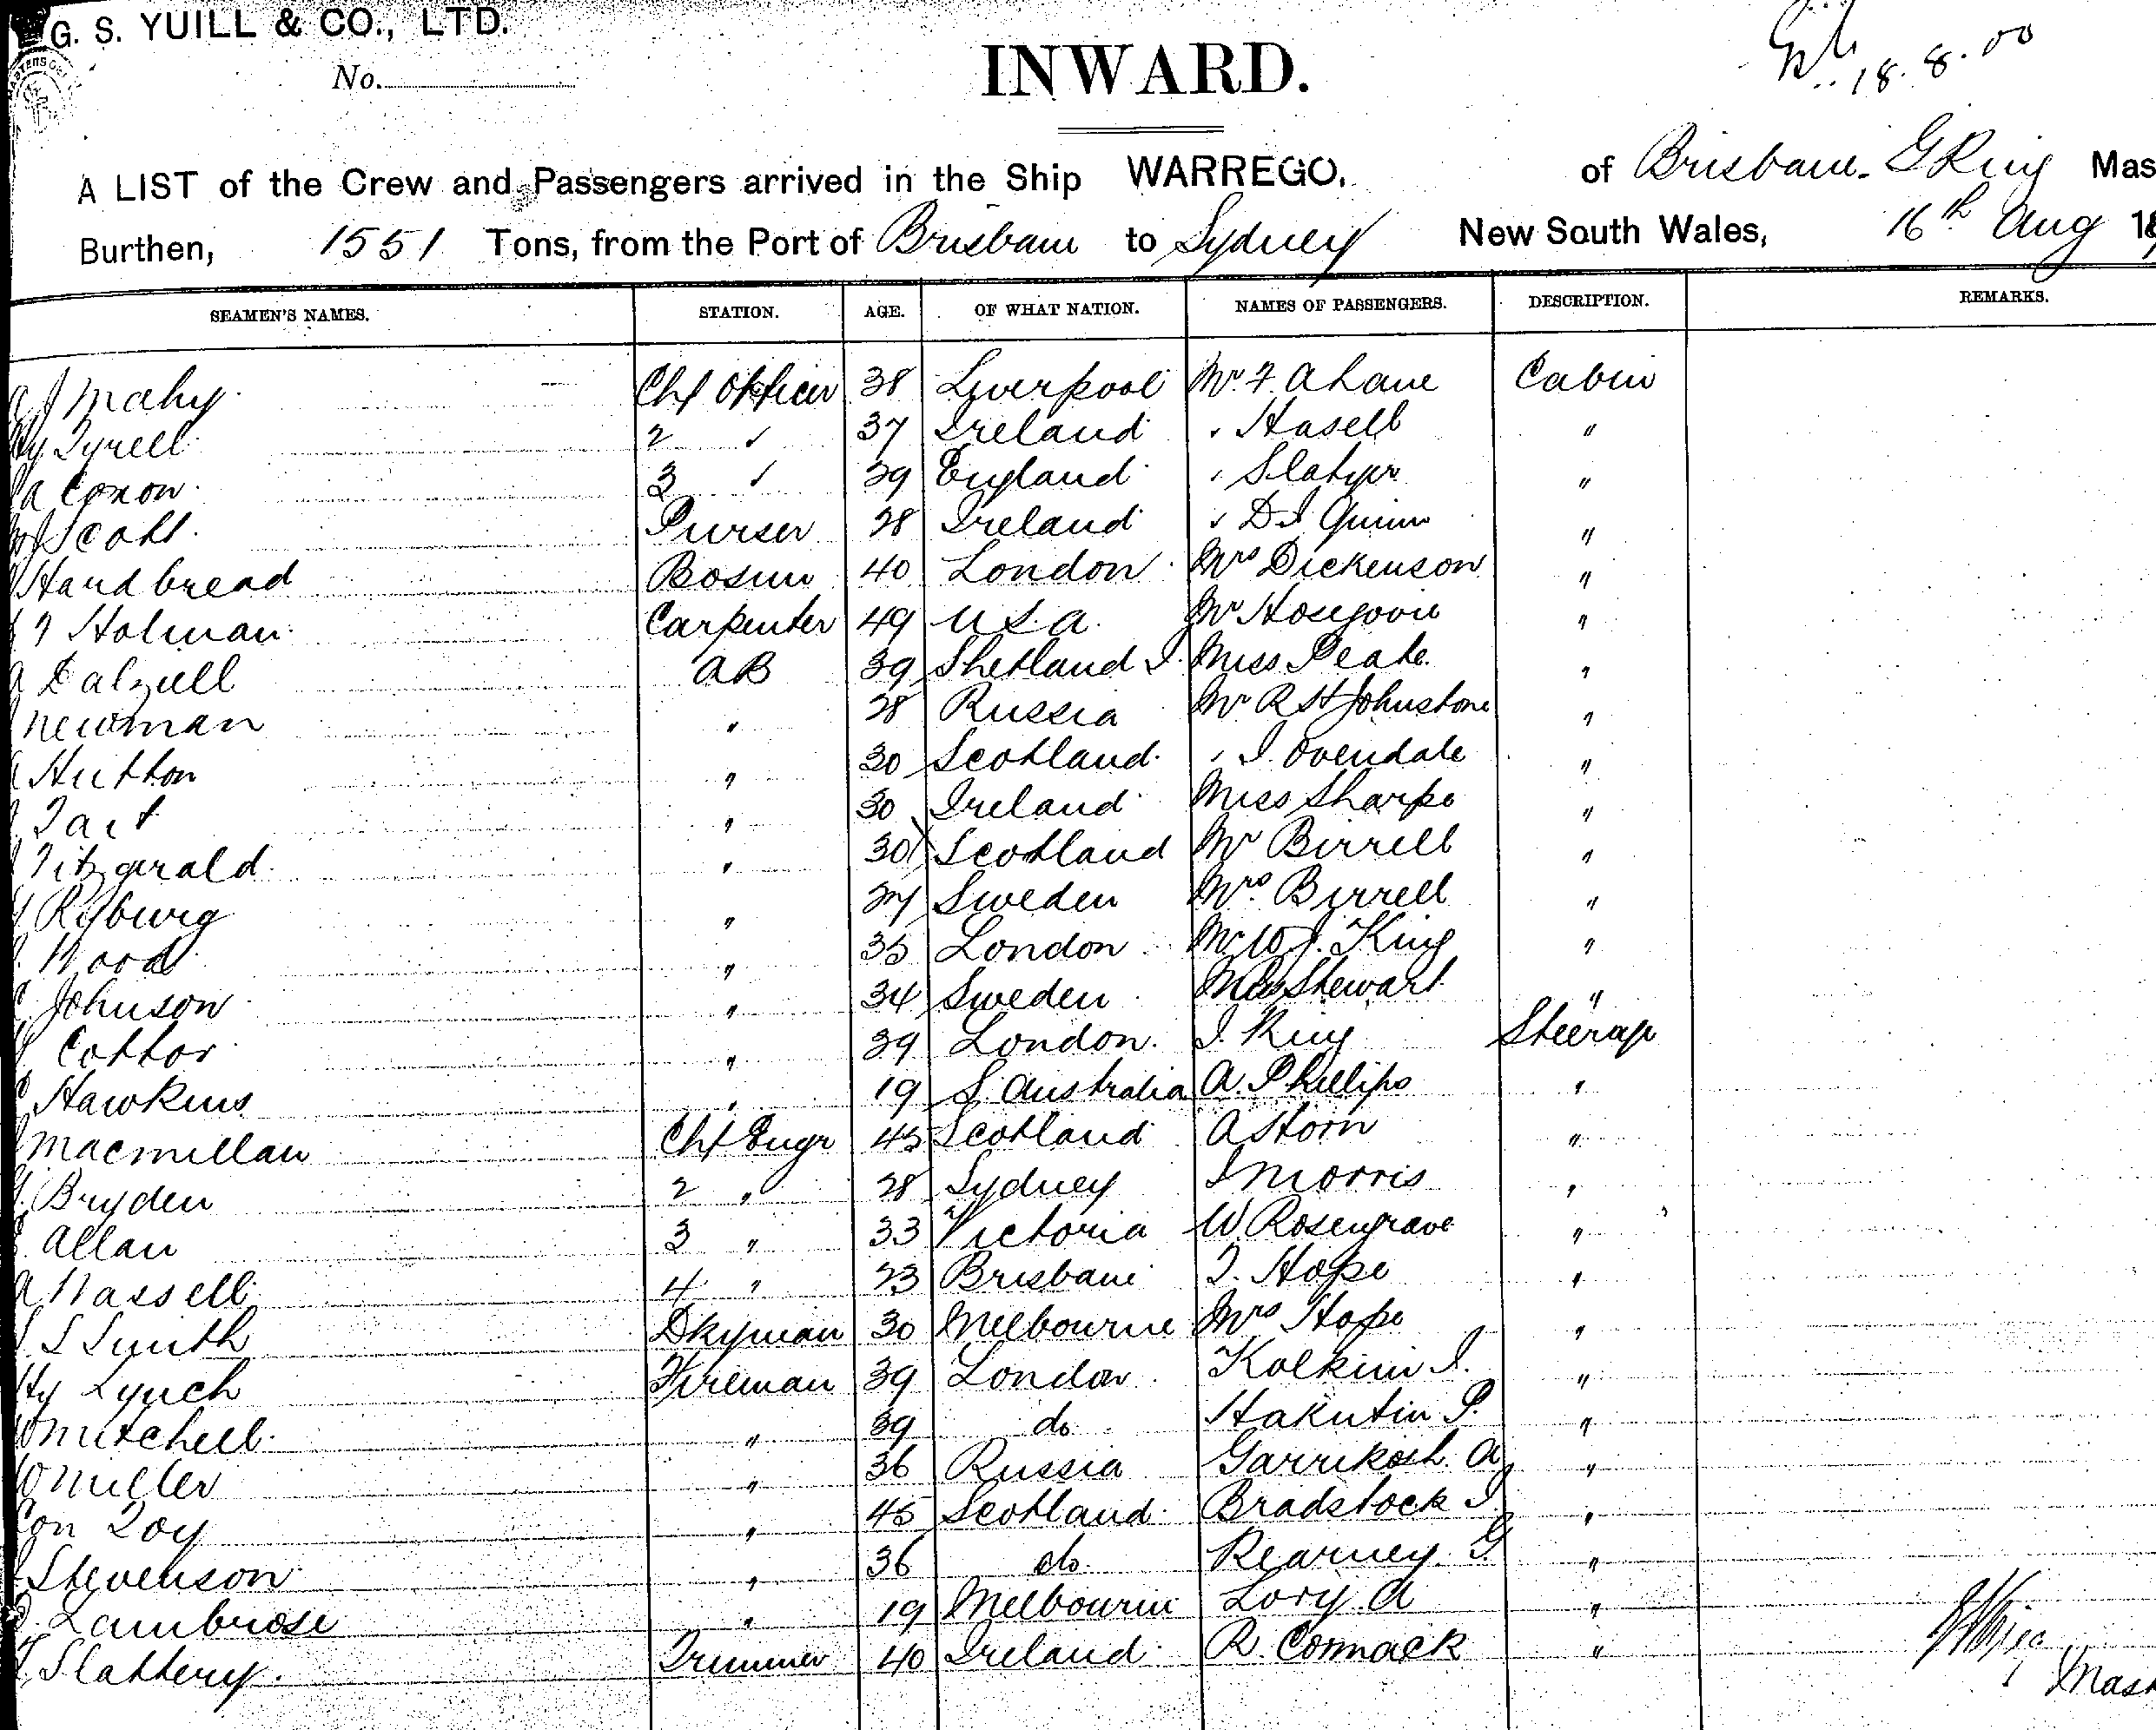 G. S. YUILL & CO., LTD.
No.
INWARD.
18. 8. 00
A LIST of the Crew and Passengers arrived in the Ship WARREGO. of Brisbane. G King Mas
Burthen, 1551 Tons, from the Port of Brisbane to Sydney New South Wales, 16th Aug 18
SEAMEN'S NAMES. STATION. AGE. OF WHAT NATION. NAMES OF PASSENGERS. DESCRIPTION. REMARKS.
A J Mahy Chf Officer 38 Liverpool Mr. F. A Lane Cabin
Hy Tyrell 2 " 37 Ireland " Hasell "
A Coxon 3 " 39 England " Slatyer "
W J Scott Purser 28 Ireland " D I Quinn "
Handbread Bosun 40 London Mrs Dickenson "
T Holman Carpenter 49 U.S.A. Mr "
A Dalzell AB 39 Shetland I. Miss Peake "
Newman " 28 Russia Mr R H Johnstone "
Hutton " 30 Scotland " J. Ovendale "
Tait " 30 Ireland Miss Sharpe "
Fitzgerald " 30 Scotland Mr Birrell "
Ryburg " 27 Sweden Mrs. Birrell "
Wood " 35 London Mr W. J. King "
Johnson " 34 Sweden Stewart "
Cottor " 39 London. J. King Steerage
Hawkins " 19 S. Australia A. Phillips "
Macmillan Chf Engr 45 Scotland A Horn "
Bryden 2 " 28 Sydney J Morris "
Allan 3 " 33 Victoria W. Rosengrave "
A Nassell 4 " 23 Brisbane T. Hope "
S Smith Dkyman 30 Melbourne Mrs Hope "
Hy Lynch Fireman 39 London Kolkini I. "
W Mitchell " 39 do Hakutin P. "
W Miller " 36 Russia Garrikosh. A "
Con Loy " 45 Scotland Bradstock J. "
Stevenson " 36 do. Kearney. G "
Lambrose " 19 Melbourne Lory A "
Slattery. Trimmer 40 Ireland R. Cormack "
Mast